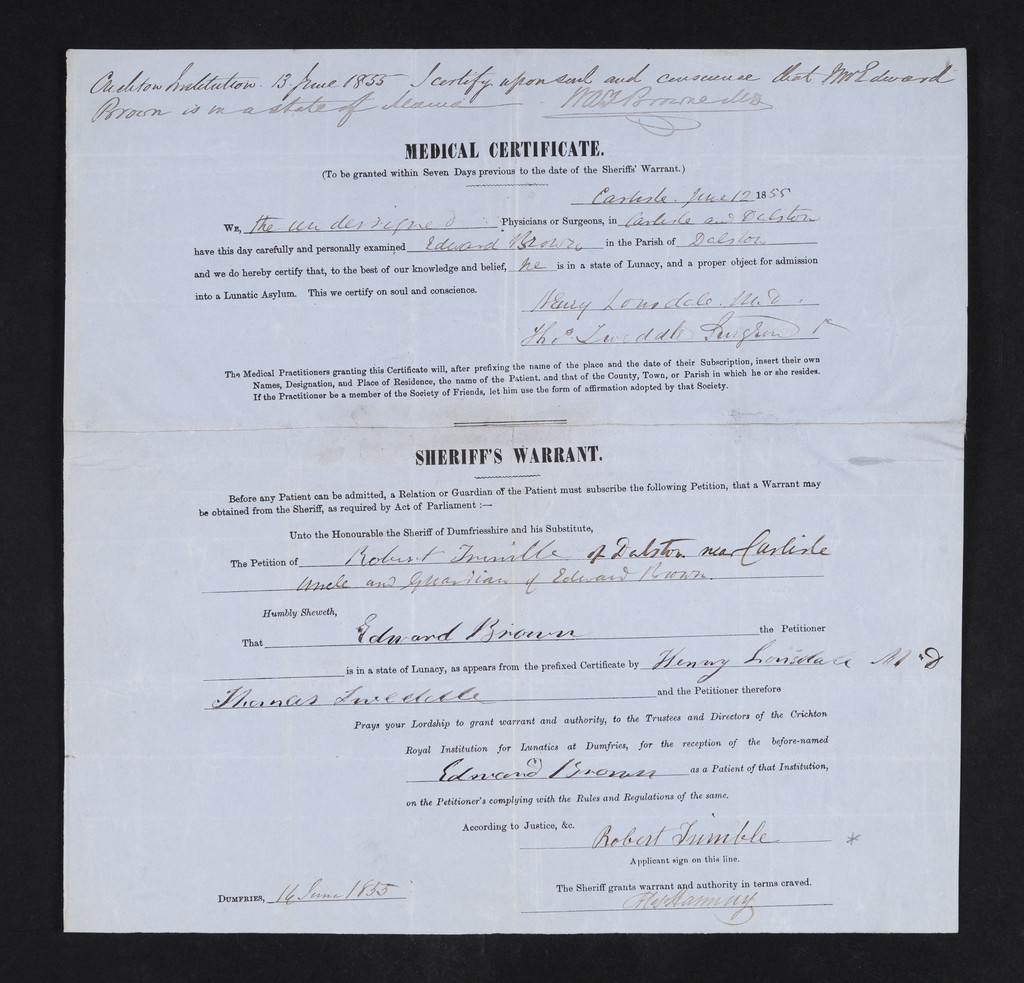 Crichton Institution. 13 June 1855 I certify upon soul and conscience that Mr Edward
Brown is in a state of Mania WAF Browne MD
MEDICAL CERTIFICATE.
(To be granted within Seven Days previous to the date of the Sheriffs' Warrant.)
Carlisle. June 12 1855
We, the undersigned Physicians or Surgeons, in Carlisle and Dalston
have this day carefully and personally examined Edward Brown in the Parish of Dalston
and we do hereby certify that, to the best of our knowledge and belief, he is in a state of Lunacy, and a proper object for admission
into a Lunatic Asylum. This we certify on soul and conscience.
Henry Lonsdale. M.D.
Thos Tweddle Surgeon
The Medical Practitioners granting this Certificate will, after prefixing the name of the place and the date of their Subscription, insert their own
Names, Designation, and Place of Residence, the name of the Patient, and that of the County, Town, or Parish in which he or she resides.
If the Practitioner be a member of the Society of Friends, let him use the form of affirmation adopted by that Society.
SHERIFF'S WARRANT.
Before any Patient can be admitted, a Relation or Guardian of the Patient must subscribe the following Petition, that a Warrant may
be obtained from the Sheriff, as required by Act of Parliament :—
Unto the Honourable the Sheriff of Dumfriesshire and his Substitute,
The Petition of Robert Trimble of Dalston near Carlisle
Uncle and Guardian of Edward Brown.
Humbly Sheweth,
That Edward Brown the Petitioner
is in a state of Lunacy, as appears from the prefixed Certificate by Henry Lonsdale M.D
Thomas Tweddle and the Petitioner therefore
Prays your Lordship to grant warrant and authority, to the Trustees and Directors of the Crichton
Royal Institution for Lunatics at Dumfries, for the reception of the before-named
Edward Brown as a Patient of that Institution,
on the Petitioner's complying with the Rules and Regulations of the same.
According to Justice, &c.
Robert Trimble *
Applicant sign on this line.
The Sheriff grants warrant and authority in terms craved.
Dumfries, 14 June 1855
Hannay